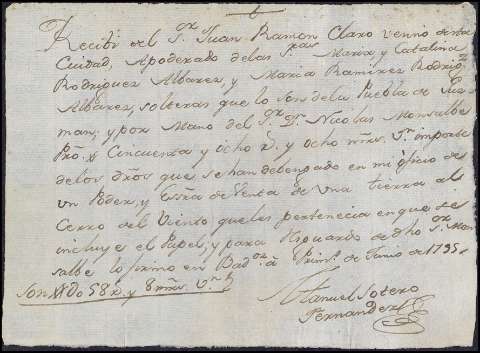 Recibi del Sr. Juan Ramon Claro vecino de esta
Ciudad, Apoderado de las Sras Maria y Catalina
Rodriguez Albarez, y Maria Ramirez Rodrig.z
Albarez, solteras que lo son de la Puebla de Guz
man; y por Mano del Sr. Dn. Nicolas Monsalbe
Pro. Cincuenta y ocho r. y ocho mrs. Vn. importe
de los dros que se han debengado en mi oficio de
un Poder, y Essra de Venta de una tierra al
Cerro del Viento que les pertenecia en que se
incluye el Papel, y para Resguardo de dho Sr. Mon
salbe lo firmo en Bad.oz à Prim.o de Junio de 1795
Son 58 r. y 8 mrs. Vn.
Manuel Sotero
Fernandez